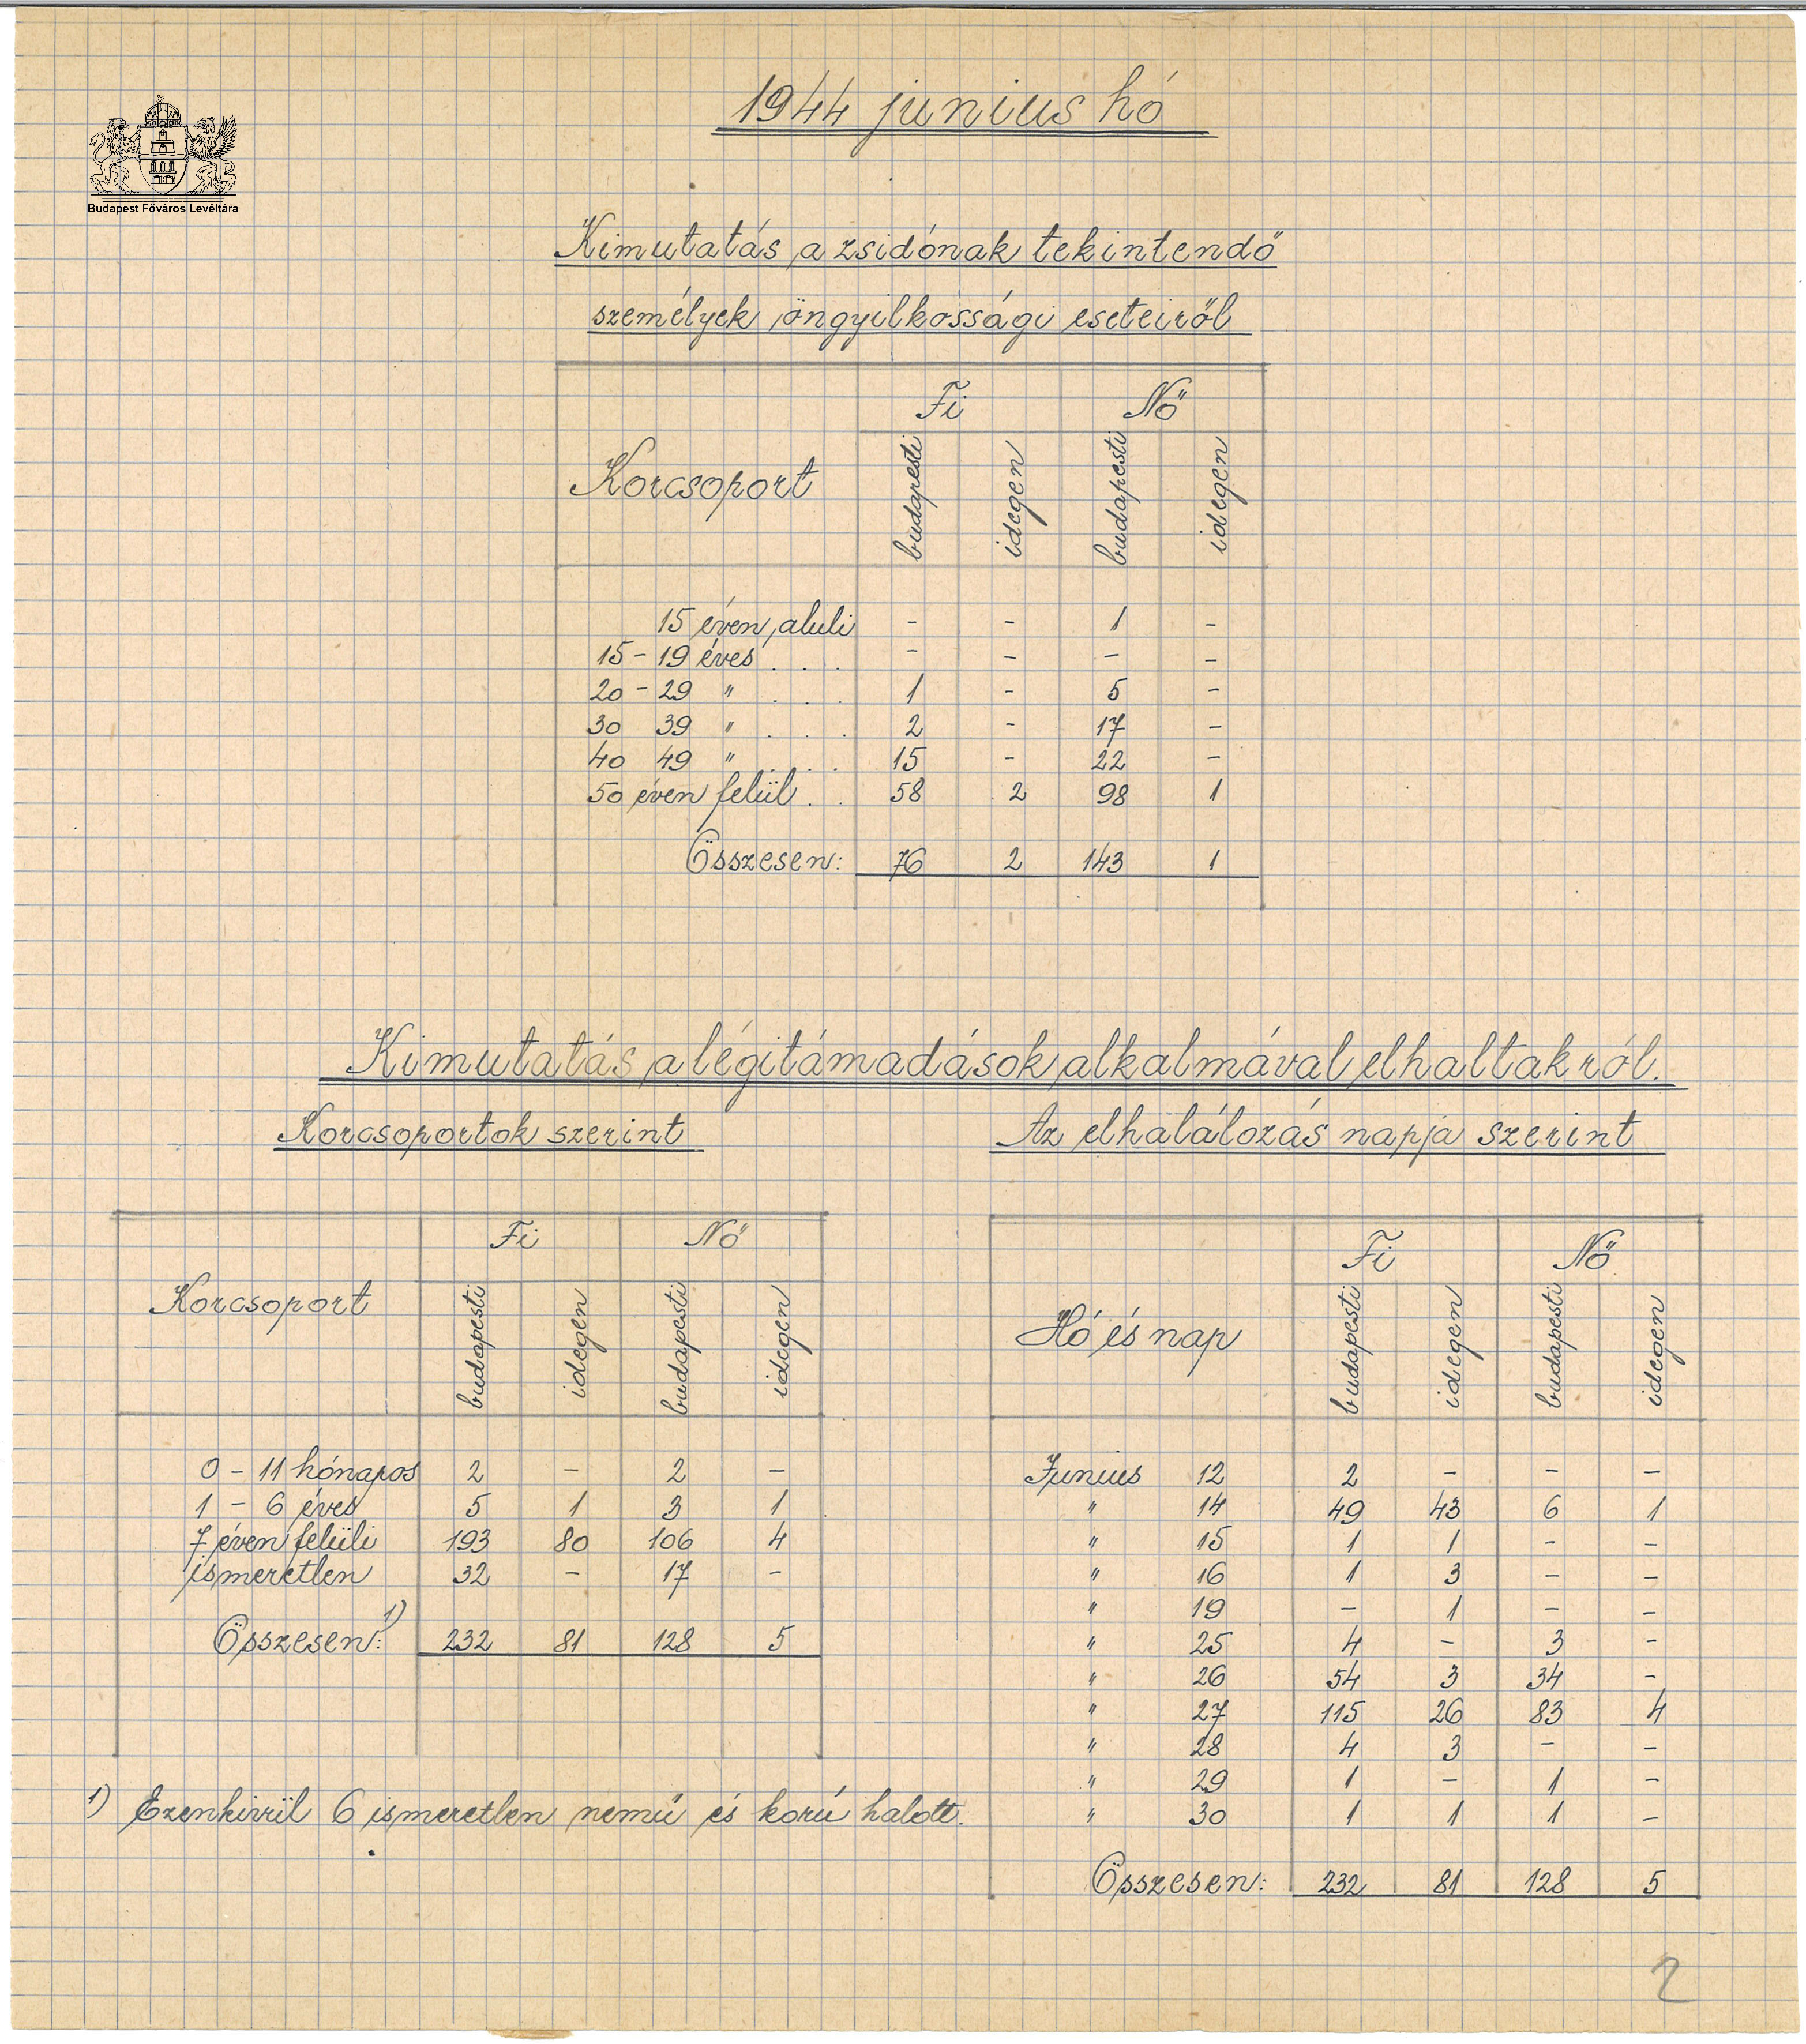 1944 junius hó
Budapest Főváros Levéltára
Kimutatás a zsidónak tekintendő
személyek öngyilkossági eseteiről
Korcsoport Fi Nő
budapesti idegen budapesti idegen
15 éven aluli - - 1 -
15 - 19 éves . . . - - - -
20 - 29 " . . . 1 - 5 -
30 39 " . . . 2 - 17 -
40 49 " . . . 15 - 22 -
50 éven felül . . 58 2 98 1
Összesen: 76 2 143 1
Kimutatás a légitámadások alkalmával elhaltakról.
Korcsoportok szerint
Korcsoport Fi Nő
budapesti idegen budapesti idegen
0 - 11 hónapos 2 - 2 -
1 - 6 éves 5 1 3 1
7 éven felüli 193 80 106 4
ismeretlen 32 - 17 -
Összesen: 1) 232 81 128 5
1) Ezenkivül 6 ismeretlen nemű és korú halott.
Az elhalálozás napja szerint
Hó és nap Fi Nő
budapesti idegen budapesti idegen
Junius 12 2 - - -
" 14 49 43 6 1
" 15 1 1 - -
" 16 1 3 - -
" 19 - 1 - -
" 25 4 - 3 -
" 26 54 3 34 -
" 27 115 26 83 4
" 28 4 3 - -
" 29 1 - 1 -
" 30 1 1 1 -
Összesen: 232 81 128 5
2